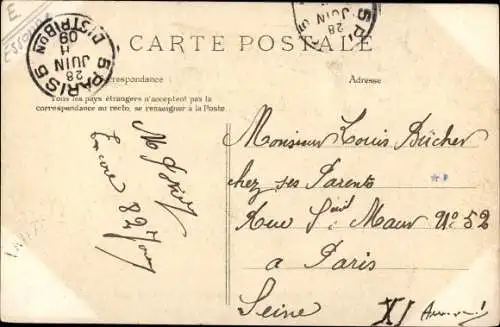 E
ESSONNE
PARIS 5
DISTRIBON
28
JUIN
09
5
28
JUIN
CARTE POSTALE
Correspondance
Adresse
Tous les pays étrangers n'acceptent pas la
correspondance au recto, se renseigner à la Poste
Encore 82 Jours
Monsieur Louis Bûcher
chez ses Parents
Rue St Maur No 52
a Paris
Seine
XI